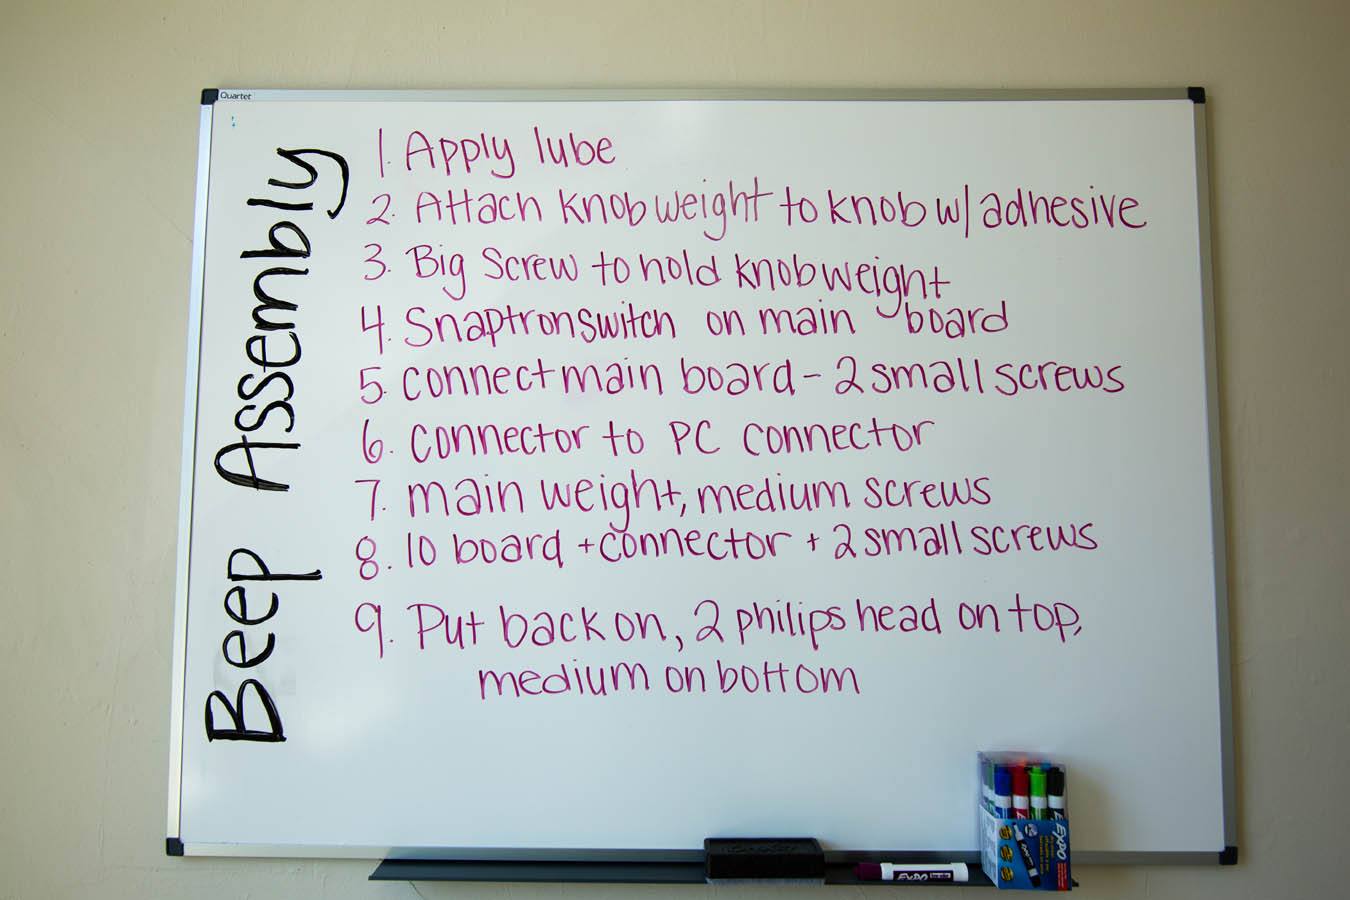 Quartet
Beep Assembly
1. Apply lube
2. Attach knob weight to knob w/ adhesive
3. Big Screw to hold knob weight
4. Snaptron switch on main board
5. connect main board - 2 small screws
6. connector to PC connector
7. main weight, medium screws
8. IO board + connector + 2 small screws
9. Put back on, 2 philips head on top,
medium on bottom
EXPO
EXPO